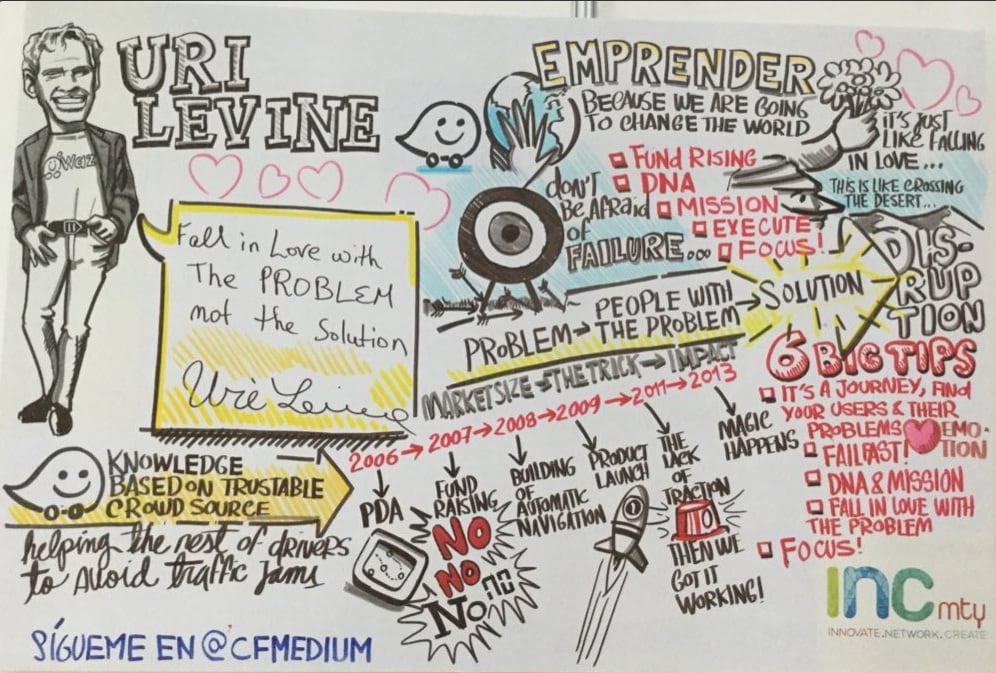 URI
LEVINE
waz
Fall in Love with
The PROBLEM
not the Solution
Uri Levine
KNOWLEDGE
BASED ON TRUSTABLE
CROWD SOURCE
helping the rest of drivers
to avoid traffic jams
SÍGUEME EN @CFMEDIUM
EMPRENDER
BECAUSE WE ARE GOING
TO CHANGE THE WORLD
IT'S JUST
LIKE FALLING
IN LOVE...
THIS IS LIKE CROSSING
THE DESERT...
DON'T
BE AFRAID
OF
FAILURE...
FUND RISING
DNA
MISSION
EXECUTE
FOCUS!
PROBLEM → PEOPLE WITH
THE PROBLEM
→ SOLUTION
DIS-
RUP
TION
MARKET SIZE → THE TRICK → IMPACT
2006 → 2007 → 2008 → 2009 → 2011 → 2013
PDA
FUND
RAISING
NO
NO
NO
NO
BUILDING
OF
AUTOMATIC
NAVIGATION
PRODUCT
LAUNCH
THE
LACK
OF
TRACTION
THEN WE
GOT IT
WORKING!
MAGIC
HAPPENS
6 BIG TIPS
IT'S A JOURNEY, FIND
YOUR USERS & THEIR
PROBLEMS
EMO-
TION
FAIL FAST!
DNA & MISSION
FALL IN LOVE WITH
THE PROBLEM
FOCUS!
INC mty
INNOVATE.NETWORK.CREATE